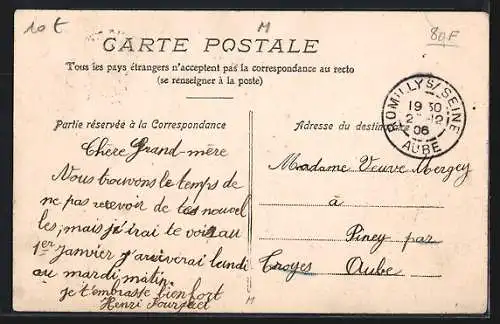 10 t
M
80F
CARTE POSTALE
Tous les pays étrangers n'acceptent pas la correspondance au recto
(se renseigner à la poste)
ROMILLY S/ SEINE
19 30
2 -12
06
AUBE
Partie réservée à la Correspondance
Adresse du destinataire
Chère Grand-mère
Nous trouvons le temps de
ne pas recevoir de tes nouvel
les; mais j'irai te voir au
1er Janvier j'arriverai lundi
ou mardi matin
je t'embrasse bien fort
Henri
Madame Veuve Mergey
à
Piney par
Troyes Aube
M